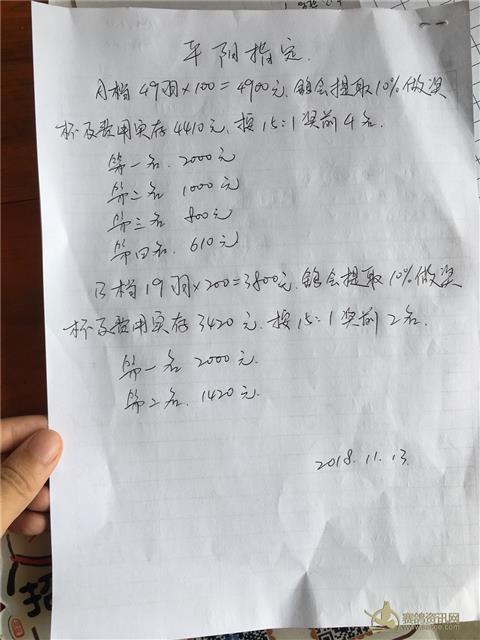 平阳指定.
A档49羽×100=4900元.鸽会提取10%做奖
杯及费用实存4410元,按15:1奖前4名.
第一名.2000元
第二名 1000元
第三名 800元
第四名.610元
B档19羽×200=3800元.鸽会提取10%做奖
杯及费用实存3420元.按15:1奖前2名.
第一名 2000元.
第二名.1420元.
2018.11.13.
赛鸽资讯网